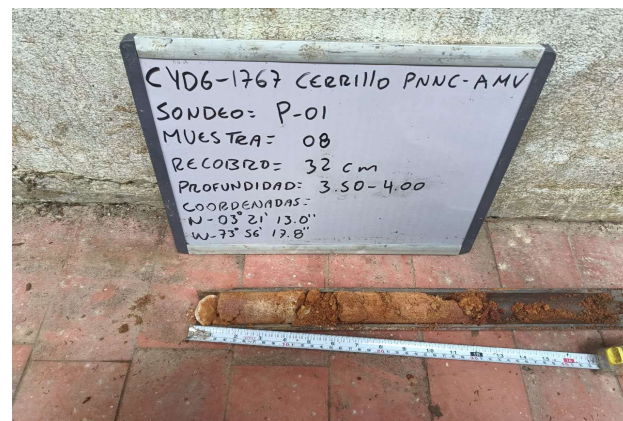 CYDG-1767 CERRILLO PNNC-AMV
SONDEO: P-01
MUESTRA= 08
RECOBRO= 32 cm
PROFUNDIDAD: 3.50-4.00
COORDENADAS=
N-03° 21' 13.0"
W-73° 56' 17.8"